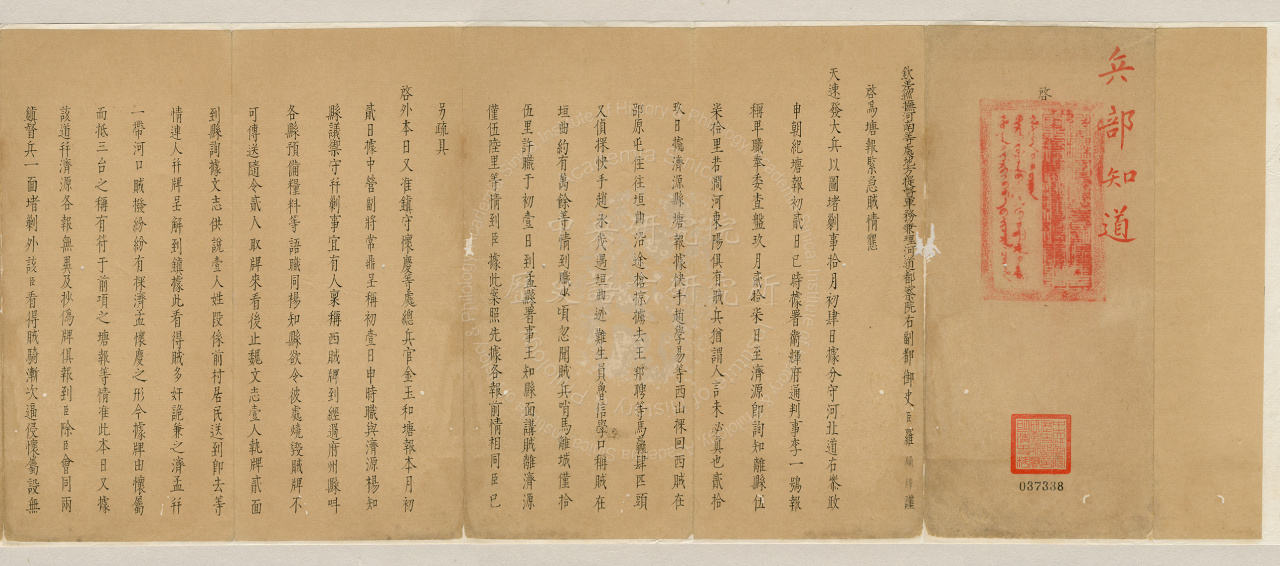 兵部知道
啓
037338
欽差巡撫河南等處地方提督軍務兼理河道都察院右副都御史臣羅繡錦謹
啓爲塘報緊急賊情懇
天速發大兵以圖堵剿事拾月初肆日據分守河北道右叅政
申朝紀塘報初貳日巳時據署衛輝府通判事李一鶚報
稱單職奉委查盤玖月貳拾柒日至濟源卽詢知離縣伍
柒拾里若澗河東陽俱有賊兵猶謂人言未必真也貳拾
玖日據濟源縣塘報據快手趙學易等西山探回西賊在
邵原屯住往垣曲沿途搶掠擄去王邦聘等馬騾肆匹頭
又偵探快手趙承茂過垣曲遇難生員魯信學口稱賊在
垣曲約有萬餘等情到職少頃忽聞賊兵哨馬離城僅拾
伍里許職于初壹日到孟縣署事王知縣面講賊離濟源
僅伍陸里等情到臣據此案照先據各報前情相同臣已
另疏具
啓外本日又准鎮守懷慶等處總兵官金玉和塘報本月初
貳日據中營副將常鼎呈稱初壹日申時職與濟源楊知
縣議禦守幷剿事宜有人稟稱西賊牌到經過府州縣叫
各縣預備糧料等語職同楊知縣欲令彼處燒毀賊牌不
可傳送隨令貳人取牌來看後止魏文志壹人執牌貳面
到縣詢據文志供說壹人姓段係前村居民送到卽去等
情連人幷牌呈解到鎮據此看得賊多奸詭兼之濟孟幷
一帶河口賊撥紛紛有探濟孟懷慶之形今據牌由懷屬
而抵三台之稱有符于前項之塘報等情准此本日又據
該道幷濟源各報無異及抄僞牌俱報到臣除臣會同兩
鎮督兵一面堵剿外該臣看得賊騎漸次逼侵懷屬設無